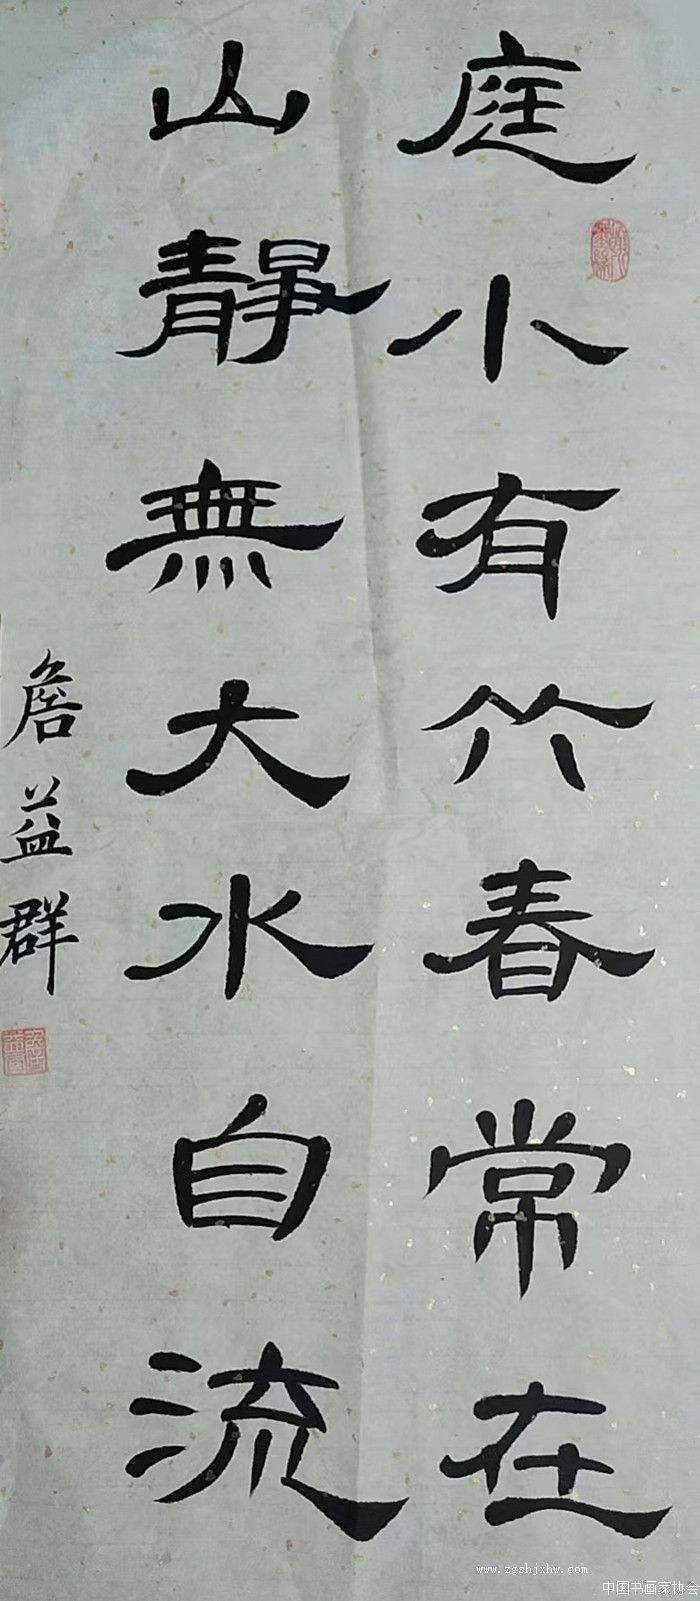 庭小有竹春常在
山靜無大水自流
詹益群
www.zgshjxhw.com
中国书画家协会